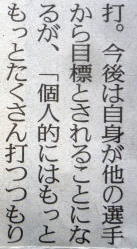 打。今後は自身が他の選手
から目標とされることにな
るが、「個人的にはもっと
もっとたくさん打つつもり